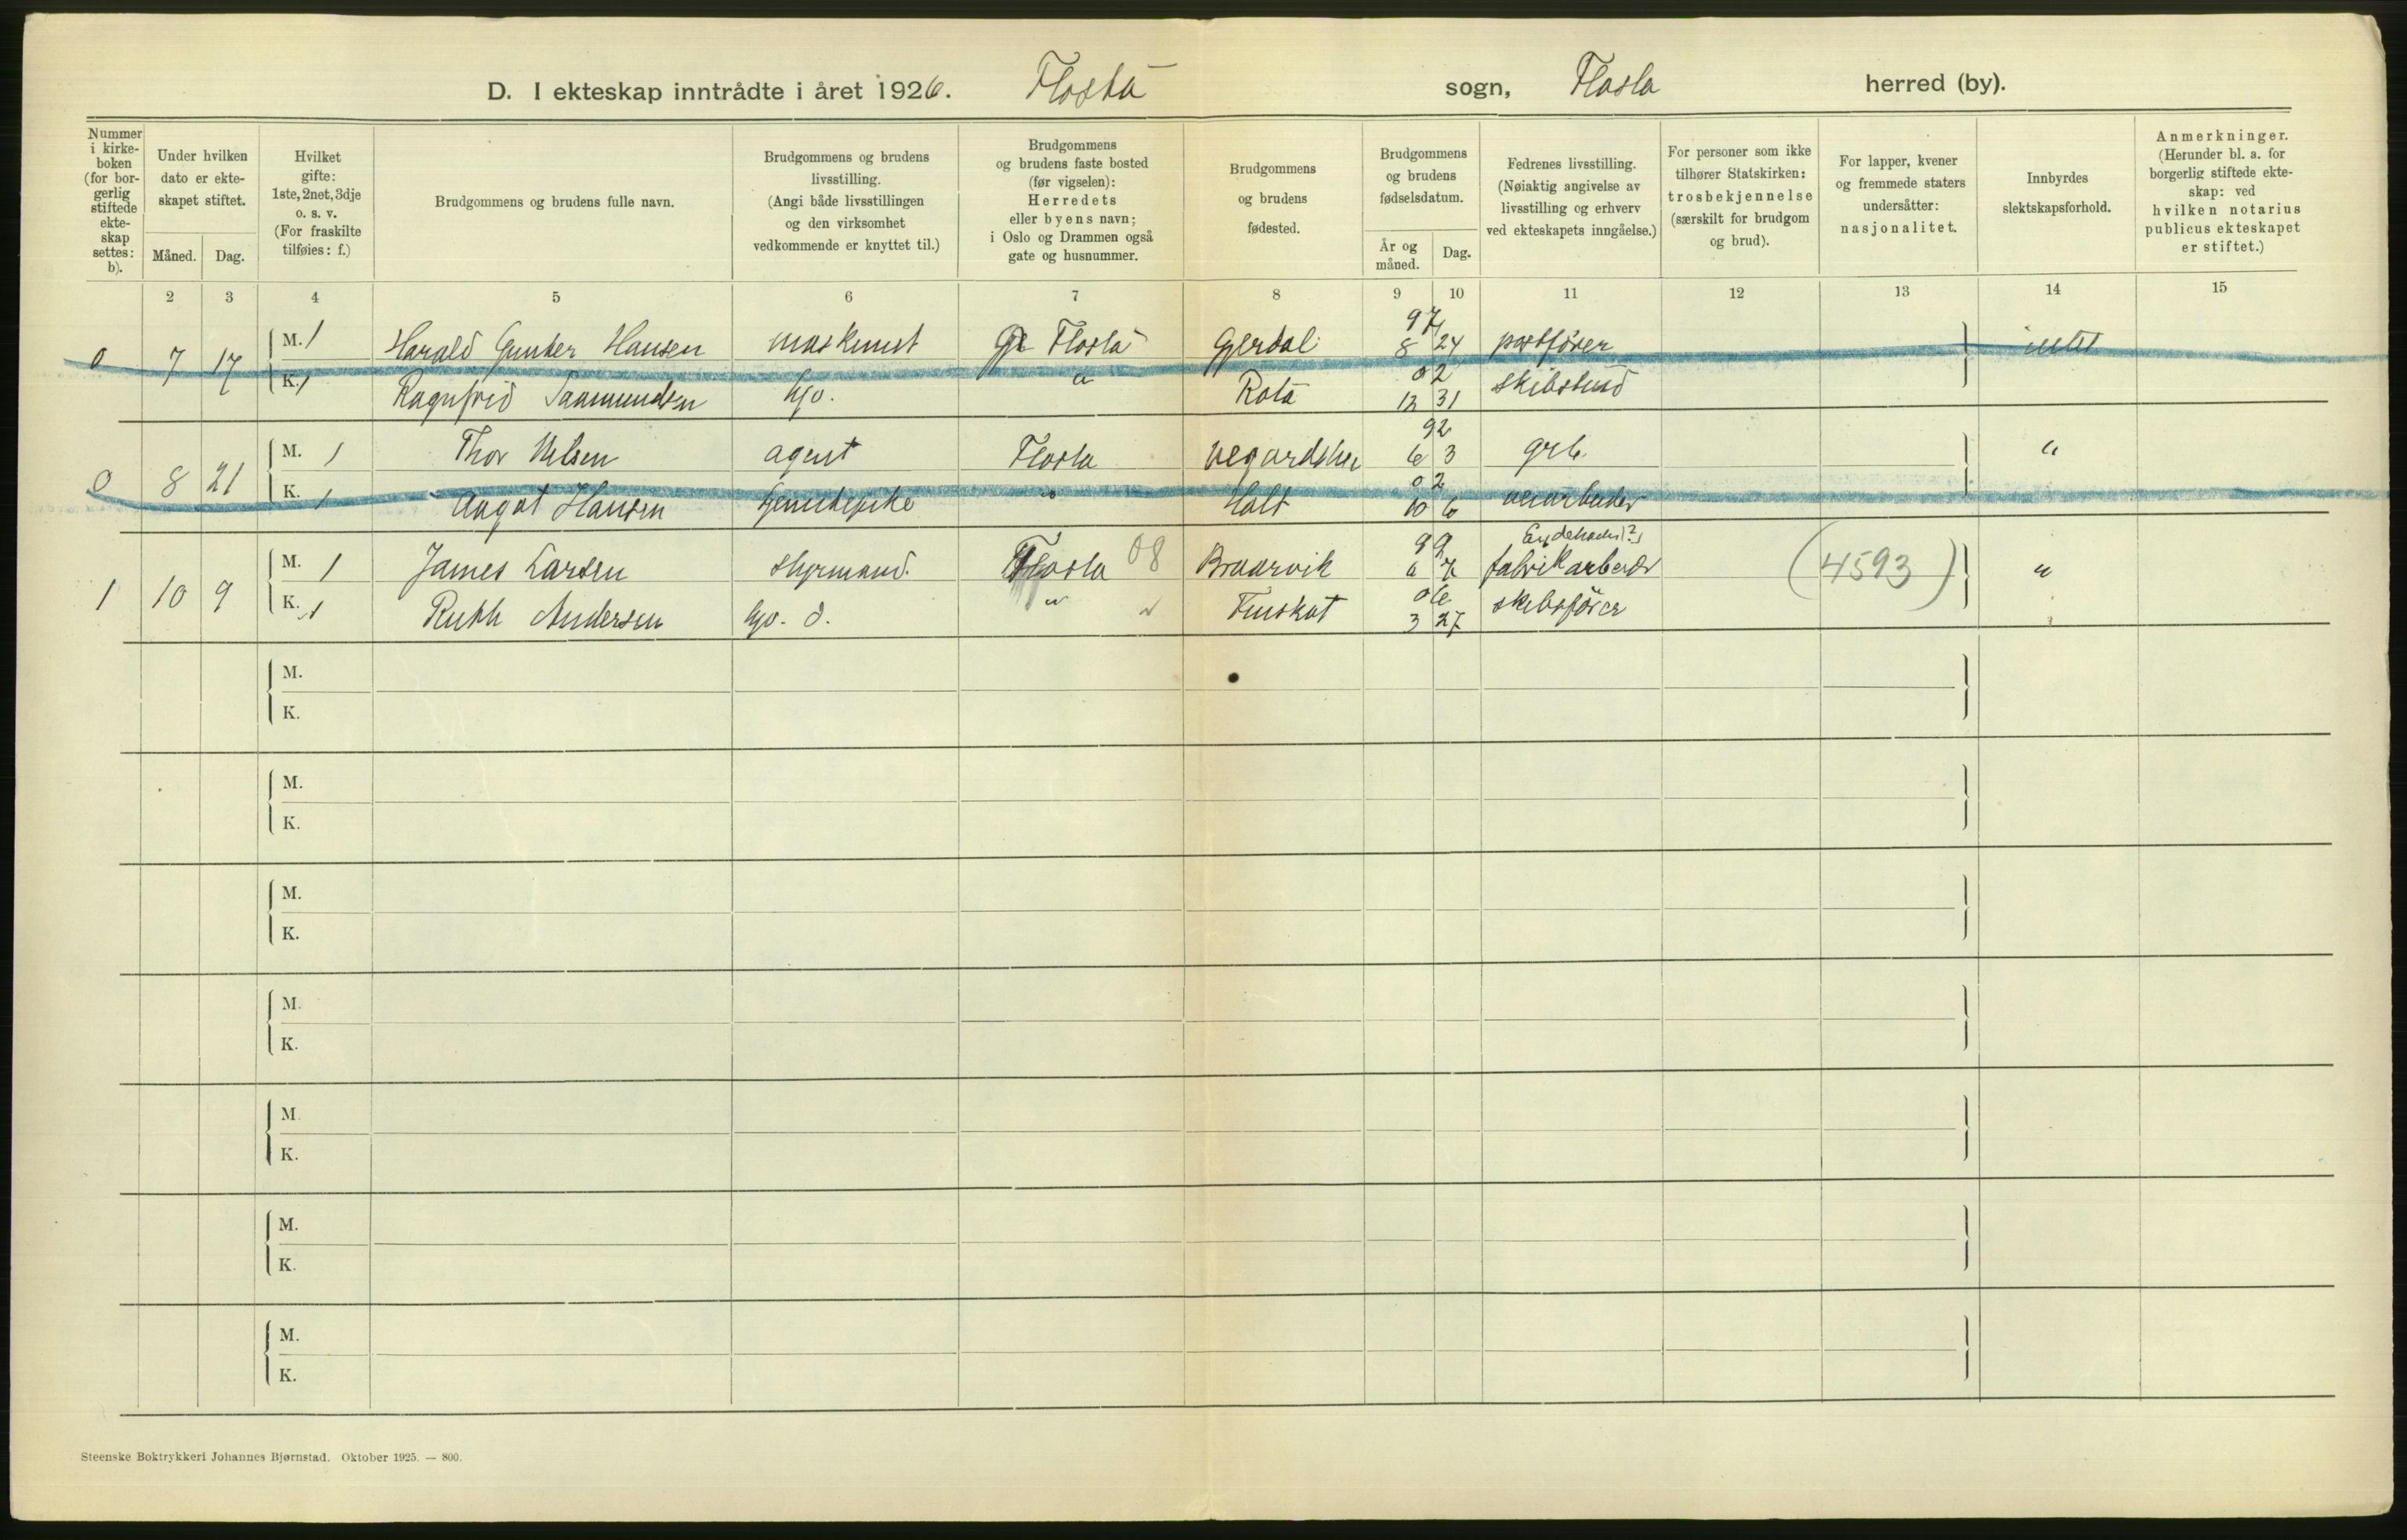 D. I ekteskap inntrådte i året 1926. Flosta sogn, Flosta herred (by).
Nummer i kirkeboken (for borgerlig stiftede ekteskap settes: b).
Under hvilken dato er ekteskapet stiftet.
Måned. Dag.
Hvilket gifte: 1ste, 2net, 3dje o. s. v. (For fraskilte tilføies: f.)
Brudgommens og brudens fulle navn.
Brudgommens og brudens livsstilling. (Angi både livsstillingen og den virksomhet vedkommende er knyttet til.)
Brudgommens og brudens faste bosted (før vigselen): Herredets eller byens navn; i Oslo og Drammen også gate og husnummer.
Brudgommens og brudens fødested.
Brudgommens og brudens fødselsdatum.
År og måned. Dag.
Fedrenes livsstilling. (Nøiaktig angivelse av livsstilling og erhverv ved ekteskapets inngåelse.)
For personer som ikke tilhører Statskirken: trosbekjennelse (særskilt for brudgom og brud).
For lapper, kvener og fremmede staters undersåtter: nasjonalitet.
Innbyrdes slektskapsforhold.
Anmerkninger. (Herunder bl. a. for borgerlig stiftede ekteskap: ved hvilken notarius publicus ekteskapet er stiftet.)
2 3 4 5 6 7 8 9 10 11 12 13 14 15
0 7 17 M. 1 Harald Gunder Hansen maskinist Flosta Gjerdal 97 8 24 postfører intet
K. 1 Ragnfrid Saamundsen hjv. " Rota 02 12 31 skibstmd
0 8 21 M. 1 Thor Nelsen agent Flosta Vegardshei 92 6 3 grb. "
K. 1 Aagot Hansen " Holt 02 10 6 veiarbeider
1 10 9 M. 1 James Larsen styrmand. Flosta 08 Braarvik 99 6 7 fabrikarbeider (4593) "
K. 1 Ruth Andersen hjv. d. " " 06 3 27 skibsfører
M.
K.
M.
K.
M.
K.
M.
K.
M.
K.
M.
K.
M.
K.
Steenske Boktrykkeri Johannes Bjørnstad. Oktober 1925. — 800.